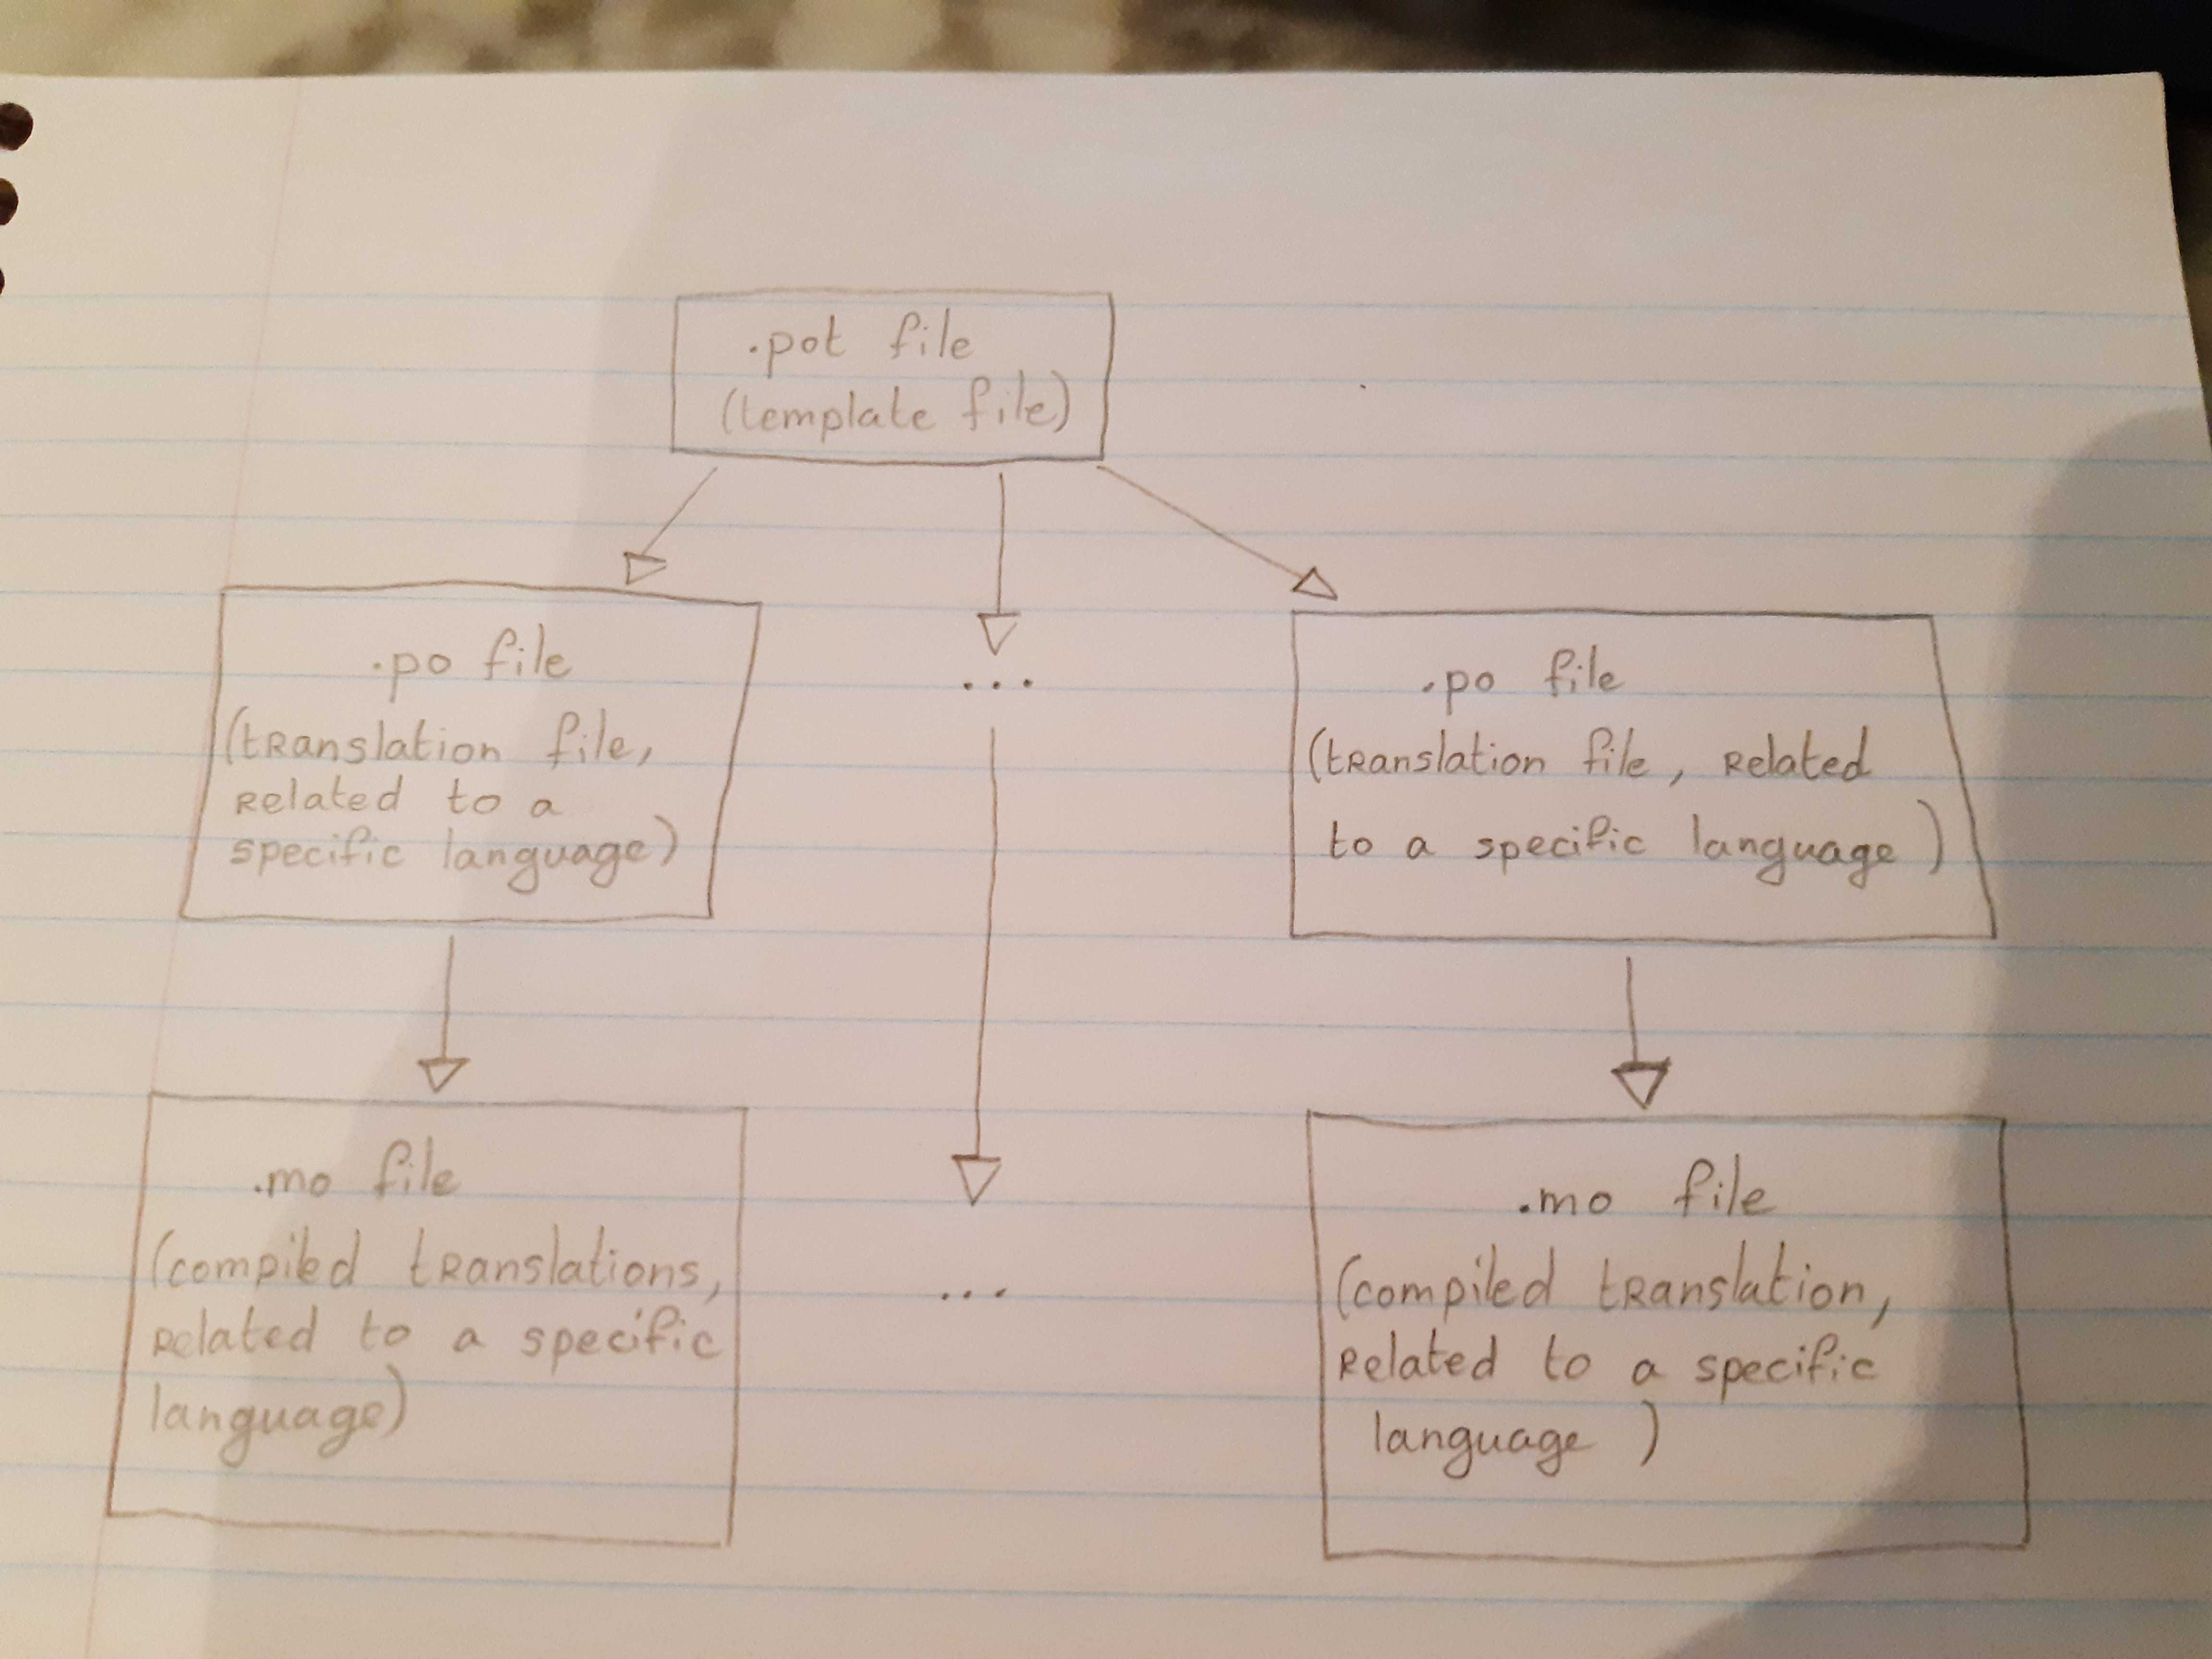 .pot file
(template file)
.po file
(translation file,
related to a
specific language)
...
.po file
(translation file, related
to a specific language)
.mo file
(compiled translations,
related to a specific
language)
...
.mo file
(compiled translation,
related to a specific
language)